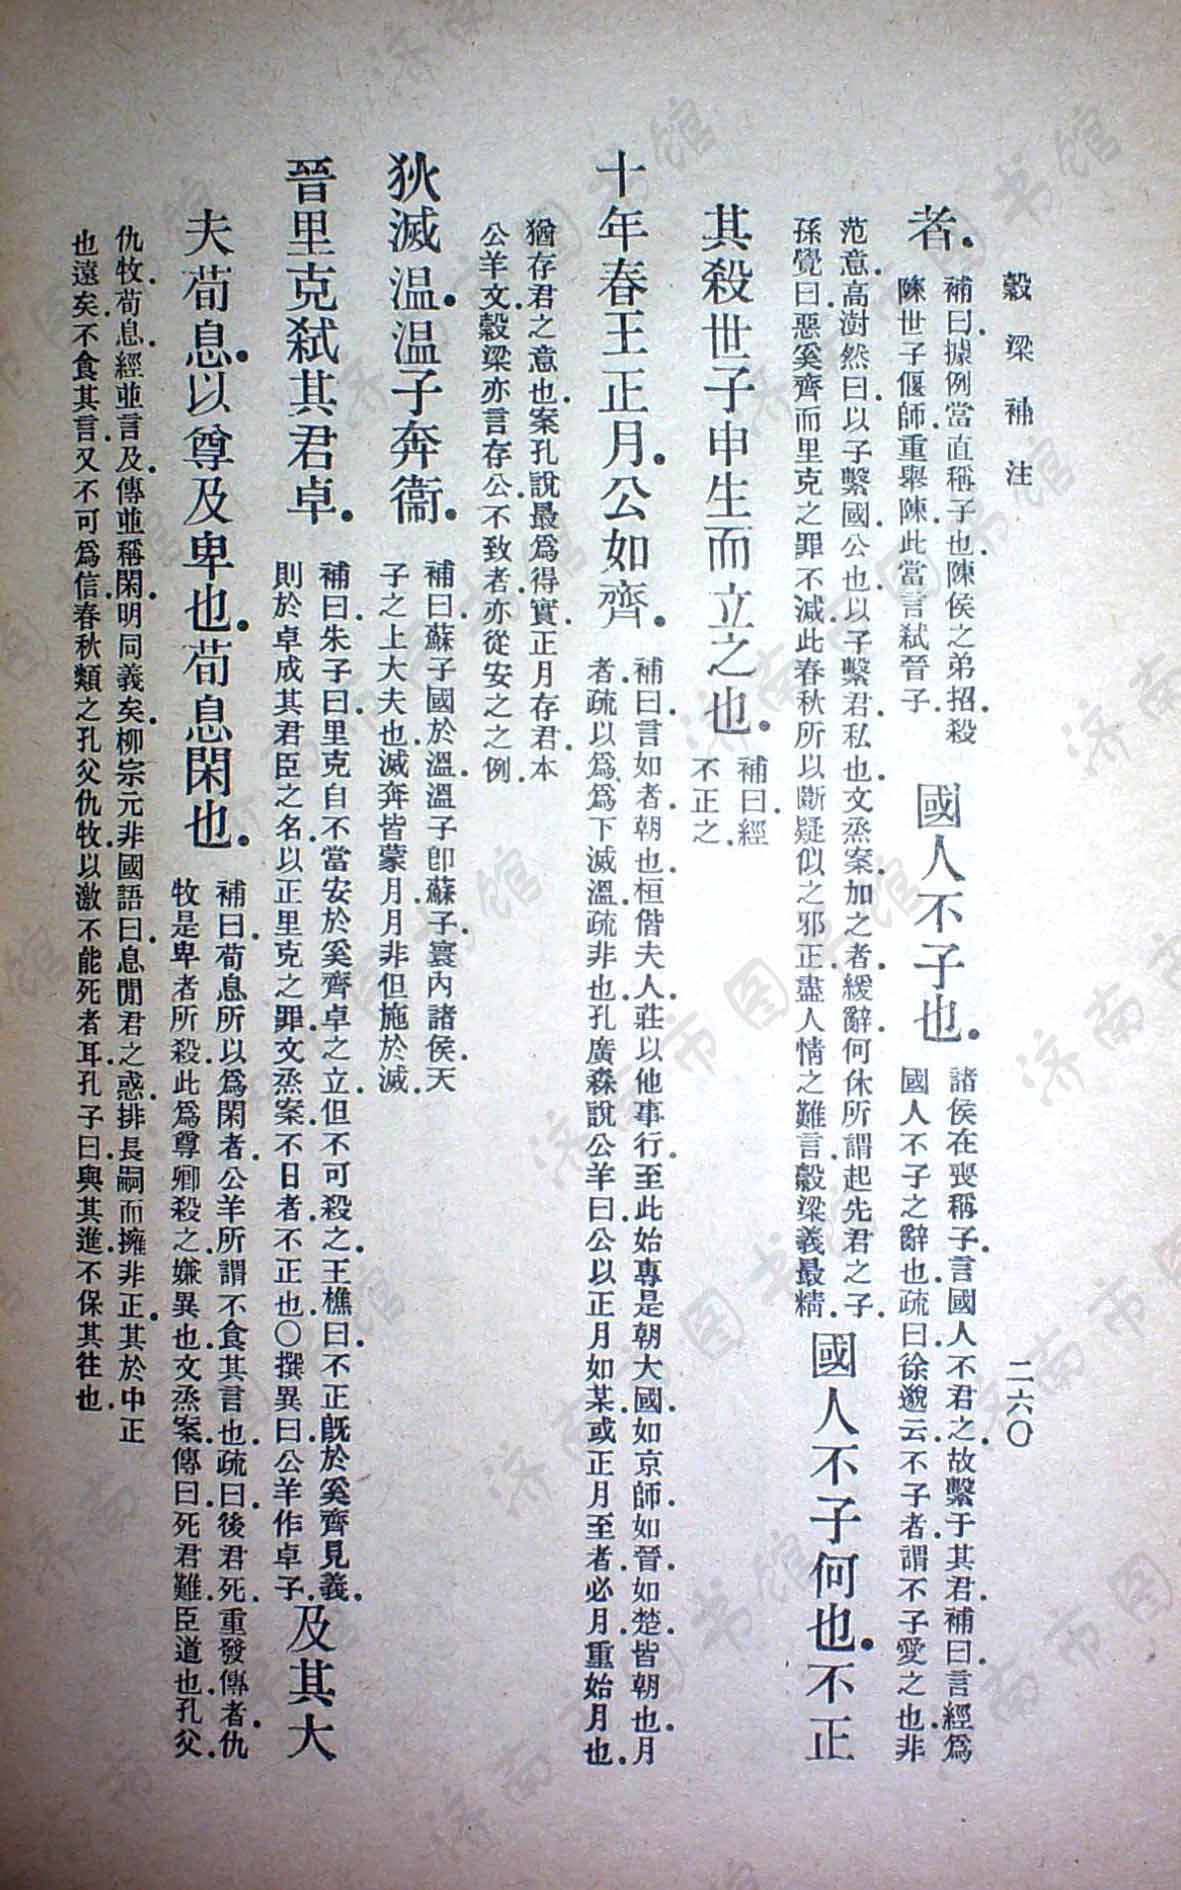 穀梁補注
二六〇
者.補曰.據例當直稱子也.陳侯之弟招.殺
陳世子偃師.重舉陳.此當言弒晉子.
國人不子也.諸侯在喪稱子.言國人不君之.故繫于其君.補曰.言經爲
國人不子之辭也.疏曰.徐邈云.不子者.謂不子愛之也.非
范意.高澍然曰.以子繫國.公也.以子繫君.私也.文烝案.加之者.緩辭.何休所謂起先君之子.
孫覺曰.惡奚齊.而里克之罪不減.此春秋所以斷疑似之邪正.盡人情之難言.穀梁義最精.
國人不子何也.不正
其殺世子申生而立之也.補曰.經
不正之.
十年春王正月.公如齊.補曰.言如者.朝也.桓偕夫人.莊以他事行.至此始專是朝大國.如京師.如晉.如楚.皆朝也.月
者.疏以爲爲下滅溫.疏非也.孔廣森說公羊曰.公以正月如某.或正月至者.必月.重始月也.
猶存君之意也.案孔說最爲得實.正月存君.本
公羊文.穀梁亦言存公.不致者.亦從安之之例.
狄滅溫.溫子奔衞.補曰.蘇子國於溫.溫子卽蘇子.寰內諸侯.天
子之上大夫也.滅奔皆蒙月.月非但施於滅.
晉里克弒其君卓.補曰.朱子曰.里克自不當安於奚齊卓之立.但不可殺之.王樵曰.不正旣於奚齊見義.
則於卓成其君臣之名.以正里克之罪.文烝案.不日者.不正也.〇撰異曰.公羊作卓子.
及其大
夫荀息.以尊及卑也.荀息閑也.補曰.荀息所以爲閑者.公羊所謂不食其言也.疏曰.後君死.重發傳者.仇
牧是卑者所殺.此爲尊卿殺之.嫌異也.文烝案.傳曰.死君難.臣道也.孔父.
仇牧.荀息.經並言及.傳並稱閑.明同義矣.柳宗元非國語曰.息閒君之惑.排長嗣而擁非正.其於中正
也遠矣.不食其言.又不可爲信.春秋類之孔父仇牧.以激不能死者耳.孔子曰.與其進.不保其往也.